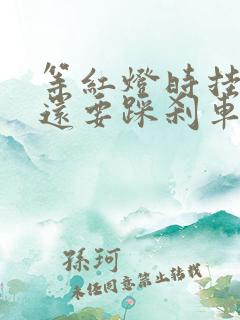 等紅燈時挂
還要踩剎車
孫珂
未經同意禁止轉載